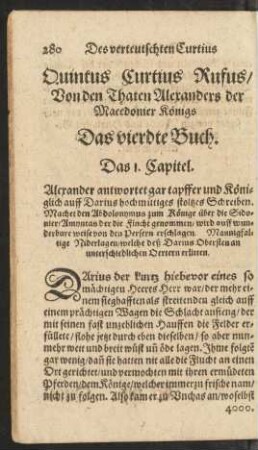 280 Des verteutschten Curtius
Quintus Curtius Rufus/
Von den Thaten Alexanders der
Macedonier Königs
Das vierdte Buch.
Das 1. Capitel.
Alexander antwortet gar tapffer und Köni-
glich auff Darius hochmütiges stoltzes Schreiben.
Machet den Abdolonymus zum Könige über die Sido-
nier/Amyntas der die Flucht genommen/wird auff wun-
derbare weise von den Persern erschlagen. Mannigfal-
tige Niderlagen/welche deß Darius Obersten an
unterschiedlichen Oertern erlitten.
DArius der kurtz hiebevor eines so
mächtigen Heeres Herr war/der mehr ei-
nem sieghafften als streitenden gleich auff
einem prächtigen Wagen die Schlacht anfieng/der
mit seinen fast unzehlichen Hauffen die Felder er-
füllete/flohe jetzt durch eben dieselben/so aber nun-
mehr weit und breit wüst uñ öde lagen. Ihme folgtẽ
gar wenig/dañ sie hatten nit alle die Flucht an einen
Ort gerichtet/und vermochten mit ihren ermüdeten
Pferden/dem Könige/welcher immerzu frische nam/
nicht zu folgen. Also kam er zu Unchas an/woselbst
4000.